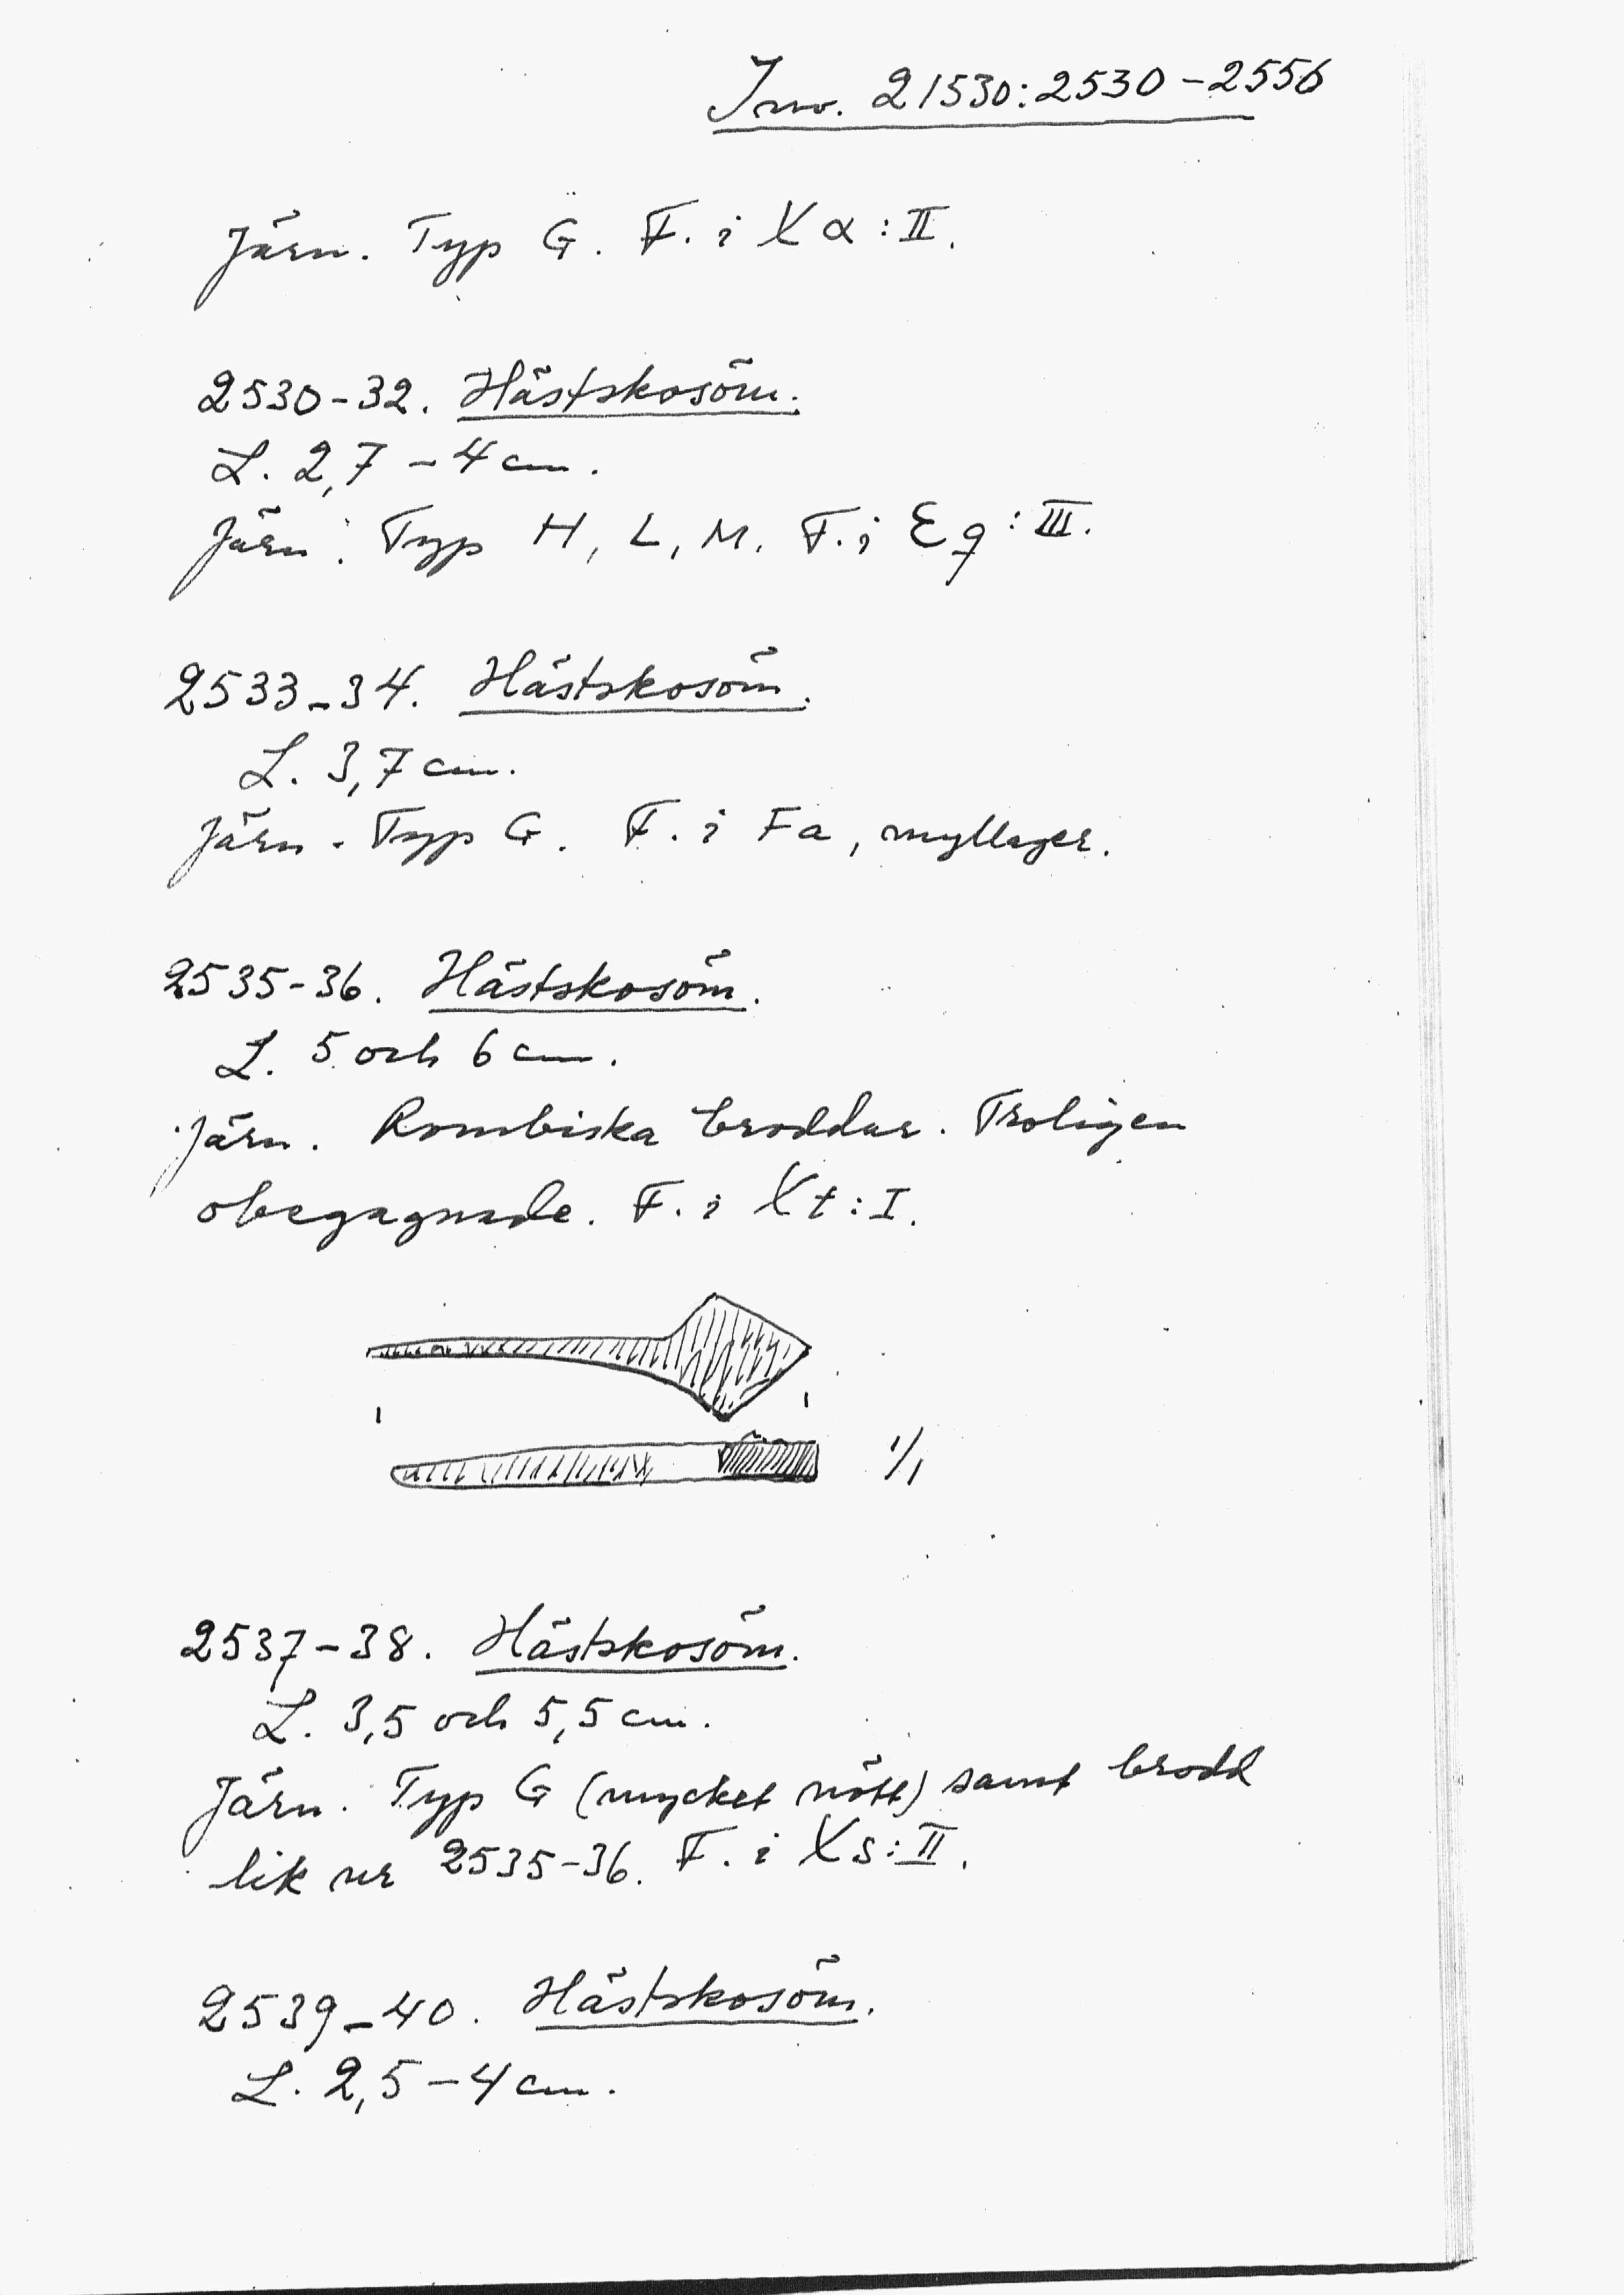 Inv. 21530:2530-2556
Järn. Typ G. F. i Xα:II.
2530-32. Hästskosöm.
L. 2,7-4 cm.
Järn. Typ H, L, M. F. i Eq:III.
2533-34. Hästskosöm.
L. 3,7 cm.
Järn. Typ G. F. i Fa, myllager.
2535-36. Hästskosöm.
L. 5 och 6 cm.
Järn. Rombiska broddar. Troligen
obegagnade. F. i Xt:I.
1/1
2537-38. Hästskosöm.
L. 3,5 och 5,5 cm.
Järn. Typ G (mycket nött) samt brodd
lik nr 2535-36. F. i Xs:II.
2539-40. Hästskosöm.
L. 2,5-4 cm.